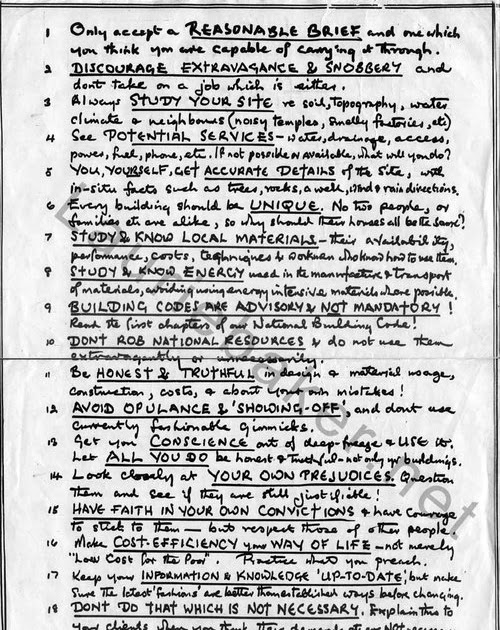 1 Only accept a REASONABLE BRIEF and one which
you think you are capable of carrying it through.
2 DISCOURAGE EXTRAVAGANCE & SNOBBERY and
dont take on a job which is either.
3 Always STUDY YOUR SITE re soil, topography, water
climate & neighbours (noisy temples, smelly factories, etc)
4 See POTENTIAL SERVICES - Water, drainage, access,
power, fuel, phone, etc. If not possible or available, what will you do?
5 YOU, YOURSELF, GET ACCURATE DETAILS of the site, with
in-situ facts such as trees, rocks, a well, wind & rain directions.
6 Every building should be UNIQUE. No two people, or
families etc are alike, so why should their houses all be the same?
7 STUDY & KNOW LOCAL MATERIALS - their availability,
performance, costs, techniques & workmen who know how to use them.
8 STUDY & KNOW ENERGY used in the manufacture & transport
of materials, avoiding using energy intensive materials where possible.
9 BUILDING CODES ARE ADVISORY & NOT MANDATORY!
Read the first chapters of the National Building Code!
10 DONT ROB NATIONAL RESOURCES & do not use them
extravagantly or unnecessarily.
11 Be HONEST & TRUTHFUL in design & material usage,
construction, costs, & about your own mistakes!
12 AVOID OPULANCE & 'SHOWING-OFF', and dont use
currently fashionable gimmicks.
13 Get your CONSCIENCE out of deep-freeze & USE it.
Let ALL YOU DO be honest & truthful - not only yr buildings.
14 Look closely at YOUR OWN PREJUDICES. Question
them and see if they are still justifiable!
15 HAVE FAITH IN YOUR OWN CONVICTIONS & have courage
to stick to them - but respect those of other people
16 Make COST-EFFICIENCY your WAY OF LIFE - not merely
"Low Cost for the Poor". Practice what you preach.
17 Keep your INFORMATION & KNOWLEDGE 'UP-TO-DATE', but make
sure the latest 'fashions' are better than established ways before changing.
18 DONT DO THAT WHICH IS NOT NECESSARY. Explain this to
your clients when you think their demands are not necessary
lauriebaker.net